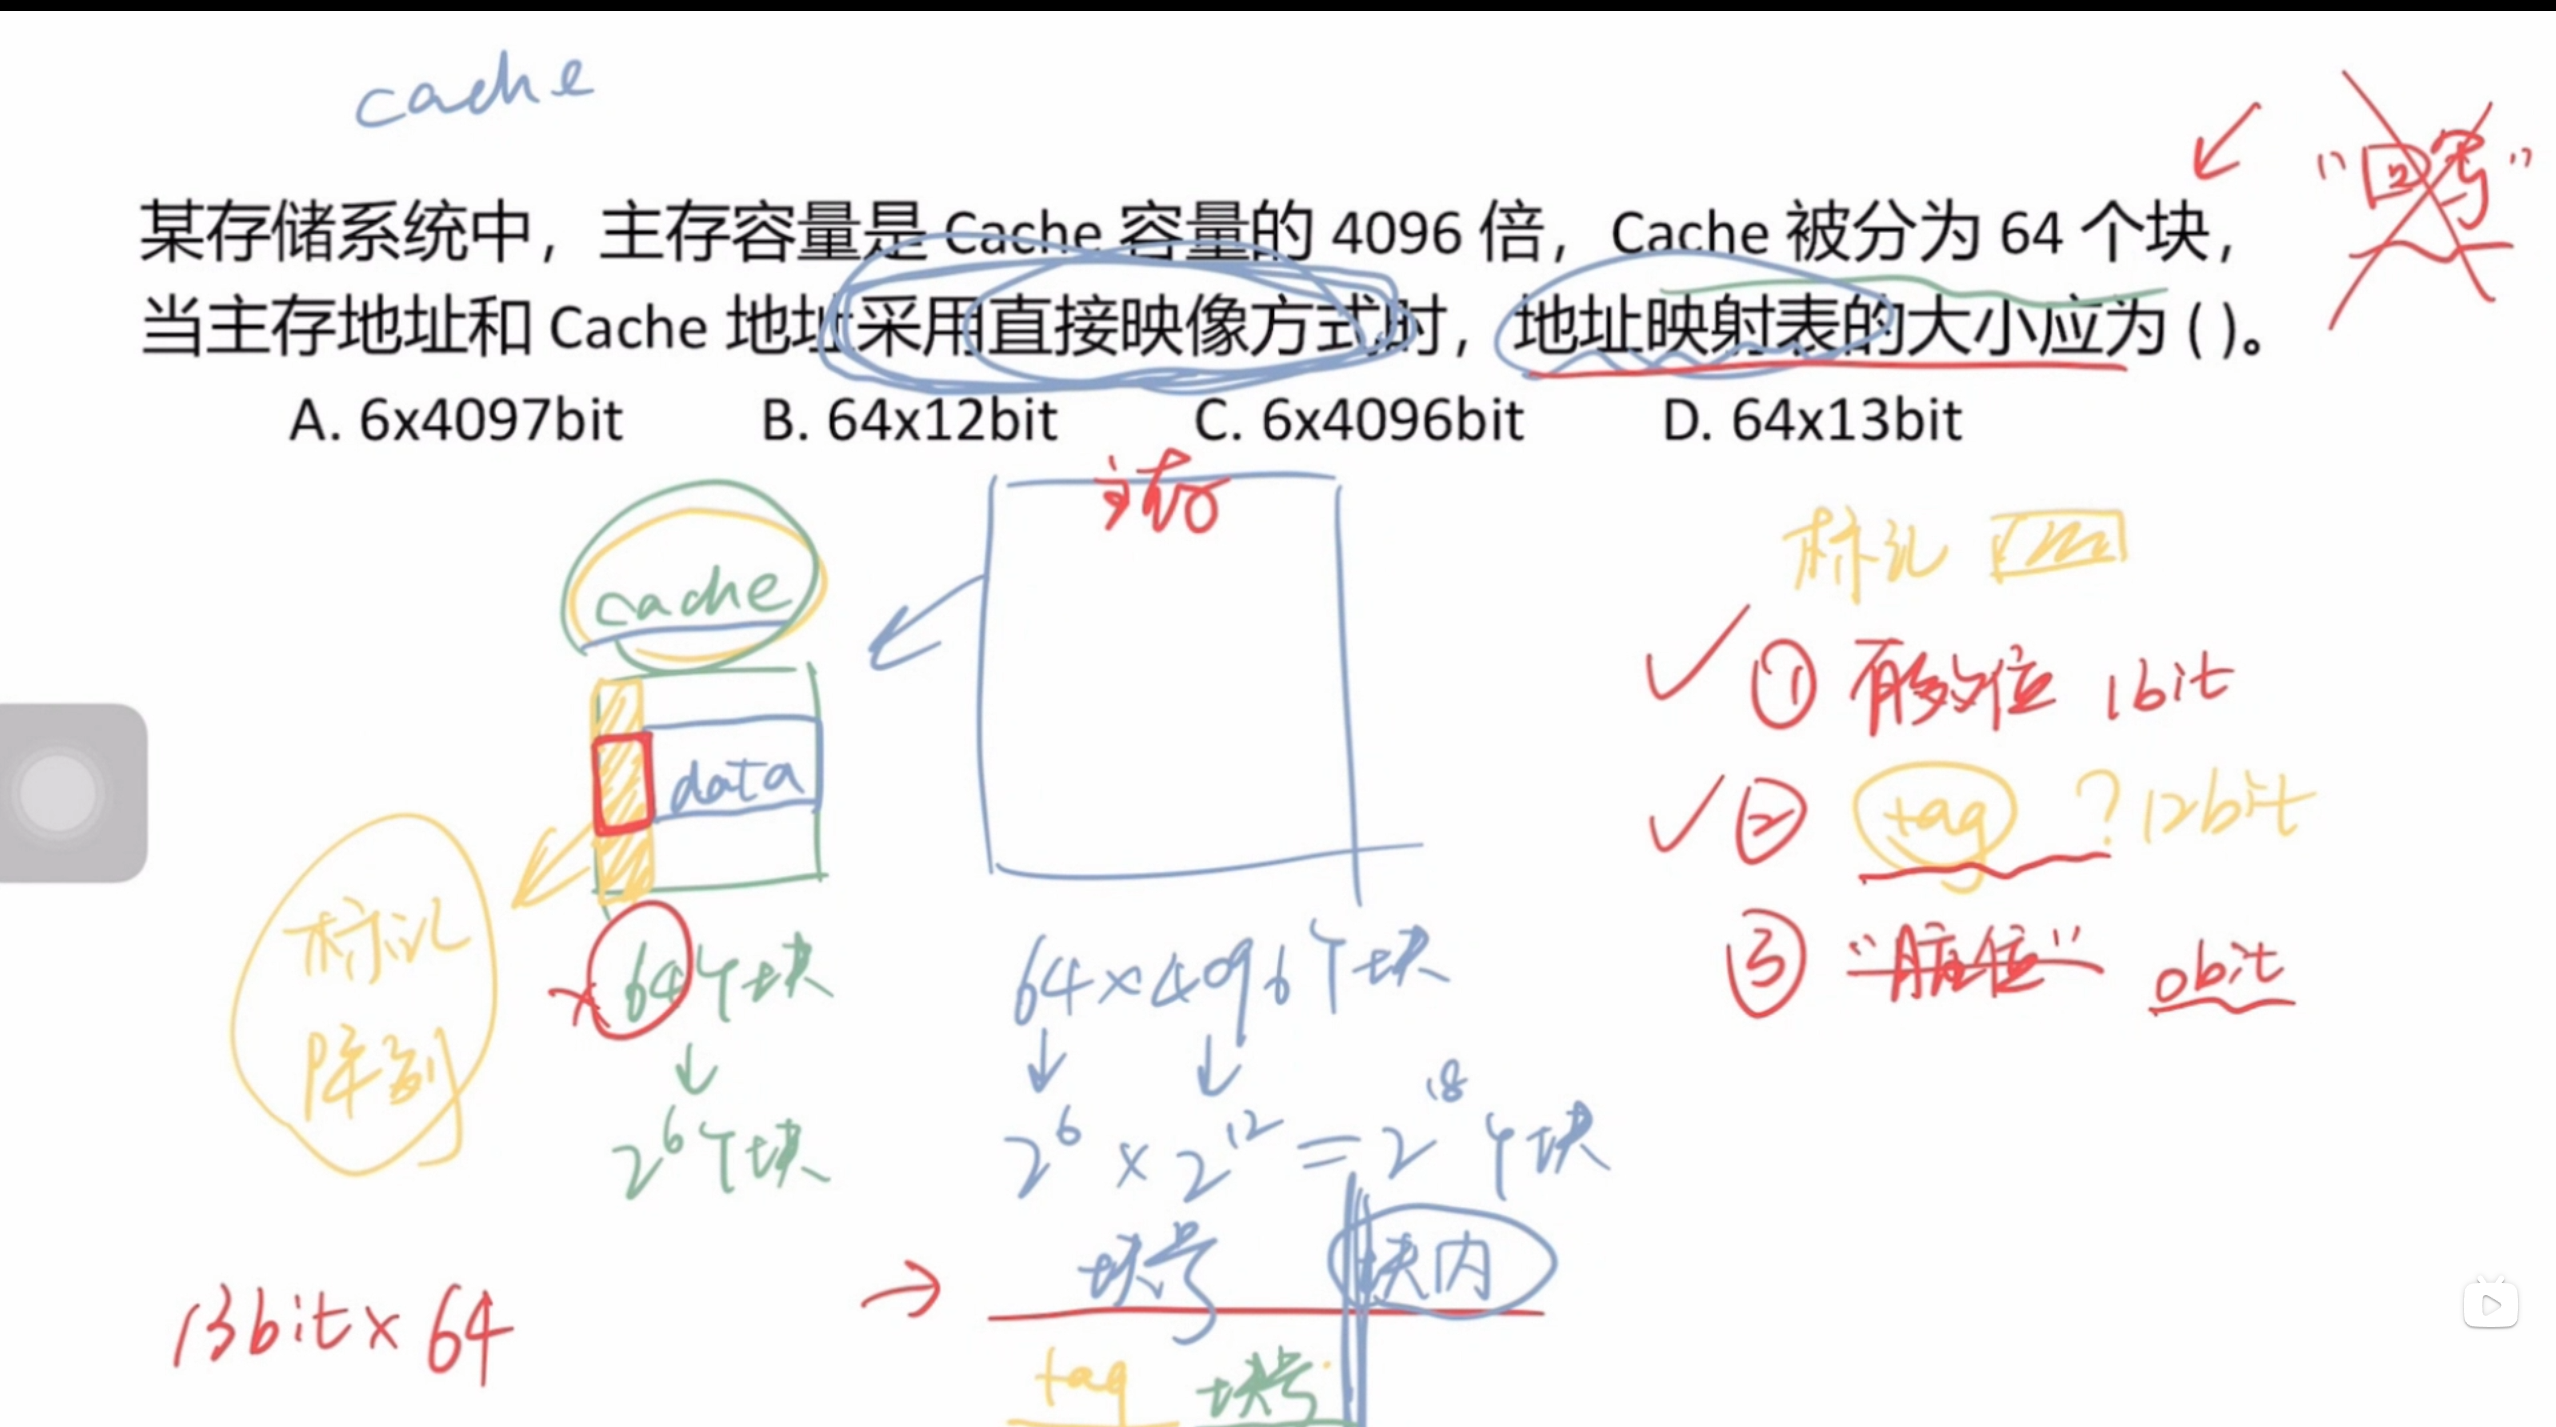 cache
"回写"
某存储系统中，主存容量是 Cache 容量的 4096 倍，Cache 被分为 64 个块，
当主存地址和 Cache 地址采用直接映像方式时，地址映射表的大小应为 ( )。
A. 6x4097bit B. 64x12bit C. 6x4096bit D. 64x13bit
主存
cache
标记
① 有效位 1bit
data
② tag ? 12bit
标记
阵列
③ "脏位" 0bit
× 64个块
64×4096个块
2⁶个块
2⁶ × 2¹² = 2¹⁸个块
块号 块内
13bit × 64
tag 块号